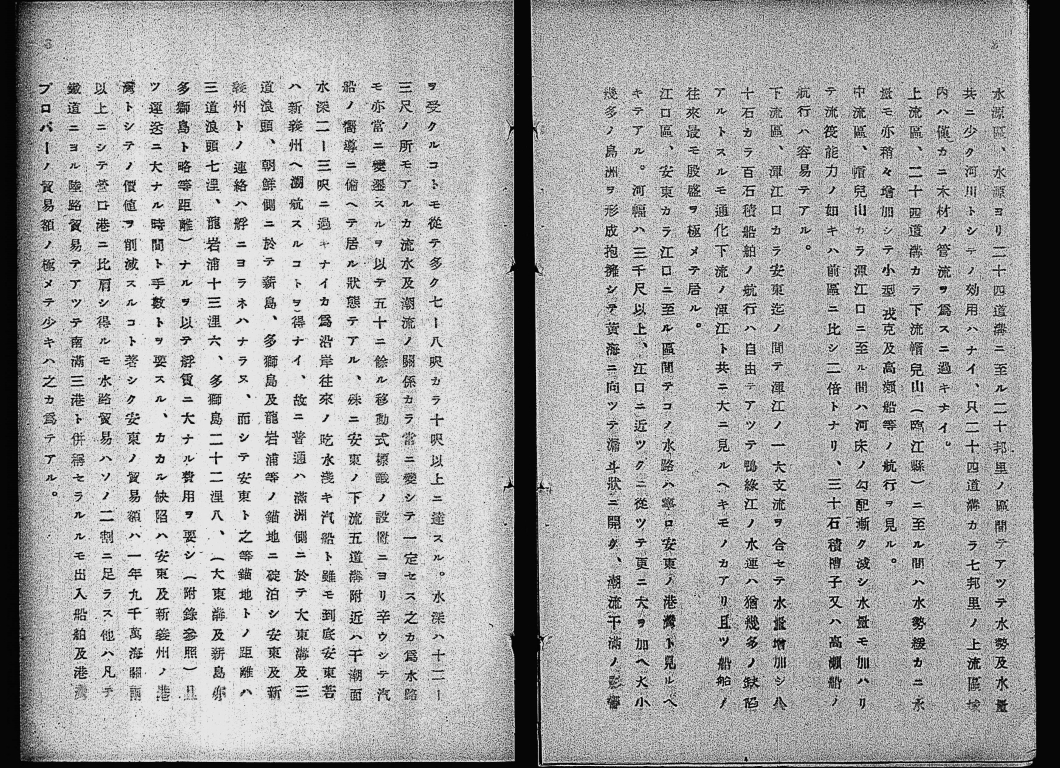 水源區、水源ヨリ二十四道溝ニ至ル二十邦里ノ區間テアツテ水勢及水量
共ニ少ク河川トシテノ効用ハナイ、只二十四道溝カラ七邦里ノ上流區域
內ハ僅カニ木材ノ管流ヲ爲スニ過キナイ。
上流區、二十四道溝カラ下流帽兒山（臨江縣）ニ至ル間ハ水勢緩カニ水
量モ亦稍々增加シテ小型戎克及高瀬船等ノ航行ヲ見ル。
中流區、帽兒山カラ渾江口ニ至ル間ハ河床ノ勾配漸ク減シ水量モ加ハリ
テ流筏能力ノ如キハ前區ニ比シ二倍トナリ、三十石積艚子又ハ高瀬船ノ
航行ハ容易テアル。
下流區、渾江口カラ安東迄ノ間テ渾江ノ一大支流ヲ合セテ水量增加シ八
十石カラ百石積船舶ノ航行ハ自由テアツテ鴨綠江ノ水運ハ猶幾多ノ缺陷
アルトスルモ通化下流ノ渾江ト共ニ大ニ見ルヘキモノカアリ且ツ船舶ノ
往來最モ殷盛ヲ極メテ居ル。
江口區、安東カラ江口ニ至ル區間テコノ水路ハ寧ロ安東ノ港灣ト見ルヘ
キテアル。河幅ハ三千尺以上、江口ニ近ツクニ從ツテ更ニ大ヲ加ヘ大小
幾多ノ島洲ヲ形成抱擁シテ黃海ニ向ツテ漏斗狀ニ開ク、潮流干滿ノ影響
ヲ受クルコトモ從テ多ク七ー八呎カラ十呎以上ニ達スル。水深ハ十二ー
三尺ノ所モアルカ流水及潮流ノ關係カラ常ニ變シテ一定セス之カ爲水路
モ亦常ニ變遷スルヲ以テ五十ニ餘ル移動式標識ノ設附ニヨリ辛ウシテ汽
船ノ嚮導ニ備ヘテ居ル狀態テアル、殊ニ安東ノ下流五道溝附近ハ干潮面
水深二ー三呎ニ過キナイカ爲沿岸往來ノ吃水淺キ汽船ト雖モ到底安東若
ハ新義州ヘ溯航スルコトヲ得ナイ、故ニ普通ハ滿洲側ニ於テ大東溝及三
道浪頭、朝鮮側ニ於テ薪島、多獅島及龍岩浦等ノ錨地ニ碇泊シ安東及新
義州トノ連絡ハ艀ニヨラネハナラヌ、而シテ安東ト之等錨地トノ距離ハ
三道浪頭七浬、龍岩浦十三浬六、多獅島二十二浬八、（大東溝及薪島亦
多獅島ト略等距離）ナルヲ以テ艀賃ニ大ナル費用ヲ要シ（附錄參照）且
ツ運送ニ大ナル時間ト手數トヲ要スル、カカル缺陷ハ安東及新義州ノ港
灣トシテノ價値ヲ削減スルコト著シク安東ノ貿易額ハ一年九千萬海關兩
以上ニシテ營口港ニ比肩シ得ルモ水路貿易ハソノ二割ニ足ラス他ハ凡テ
鐵道ニヨル陸路貿易テアツテ南滿三港ト併稱セラルルモ出入船舶及港灣
プロパーノ貿易額ノ極メテ少キハ之カ爲テアル。
3